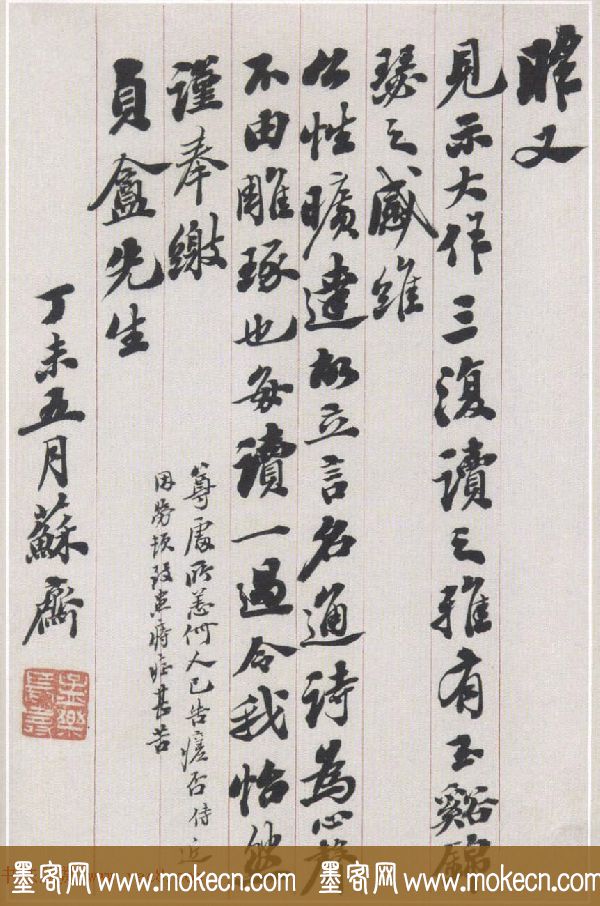 昨又
見示大作三復讀之雅有玉谿錦
瑟之感維
公性曠達故立言名通詩為心聲
不由雕琢也每讀一過令我怡然
謹奉繳
貞盦先生
尊處所恙何人已告瘥否侍近
因勞頓致患痔症甚苦
丁未五月蘇齋
墨客网 www.mokecn.com 墨客网 www.mokecn.com